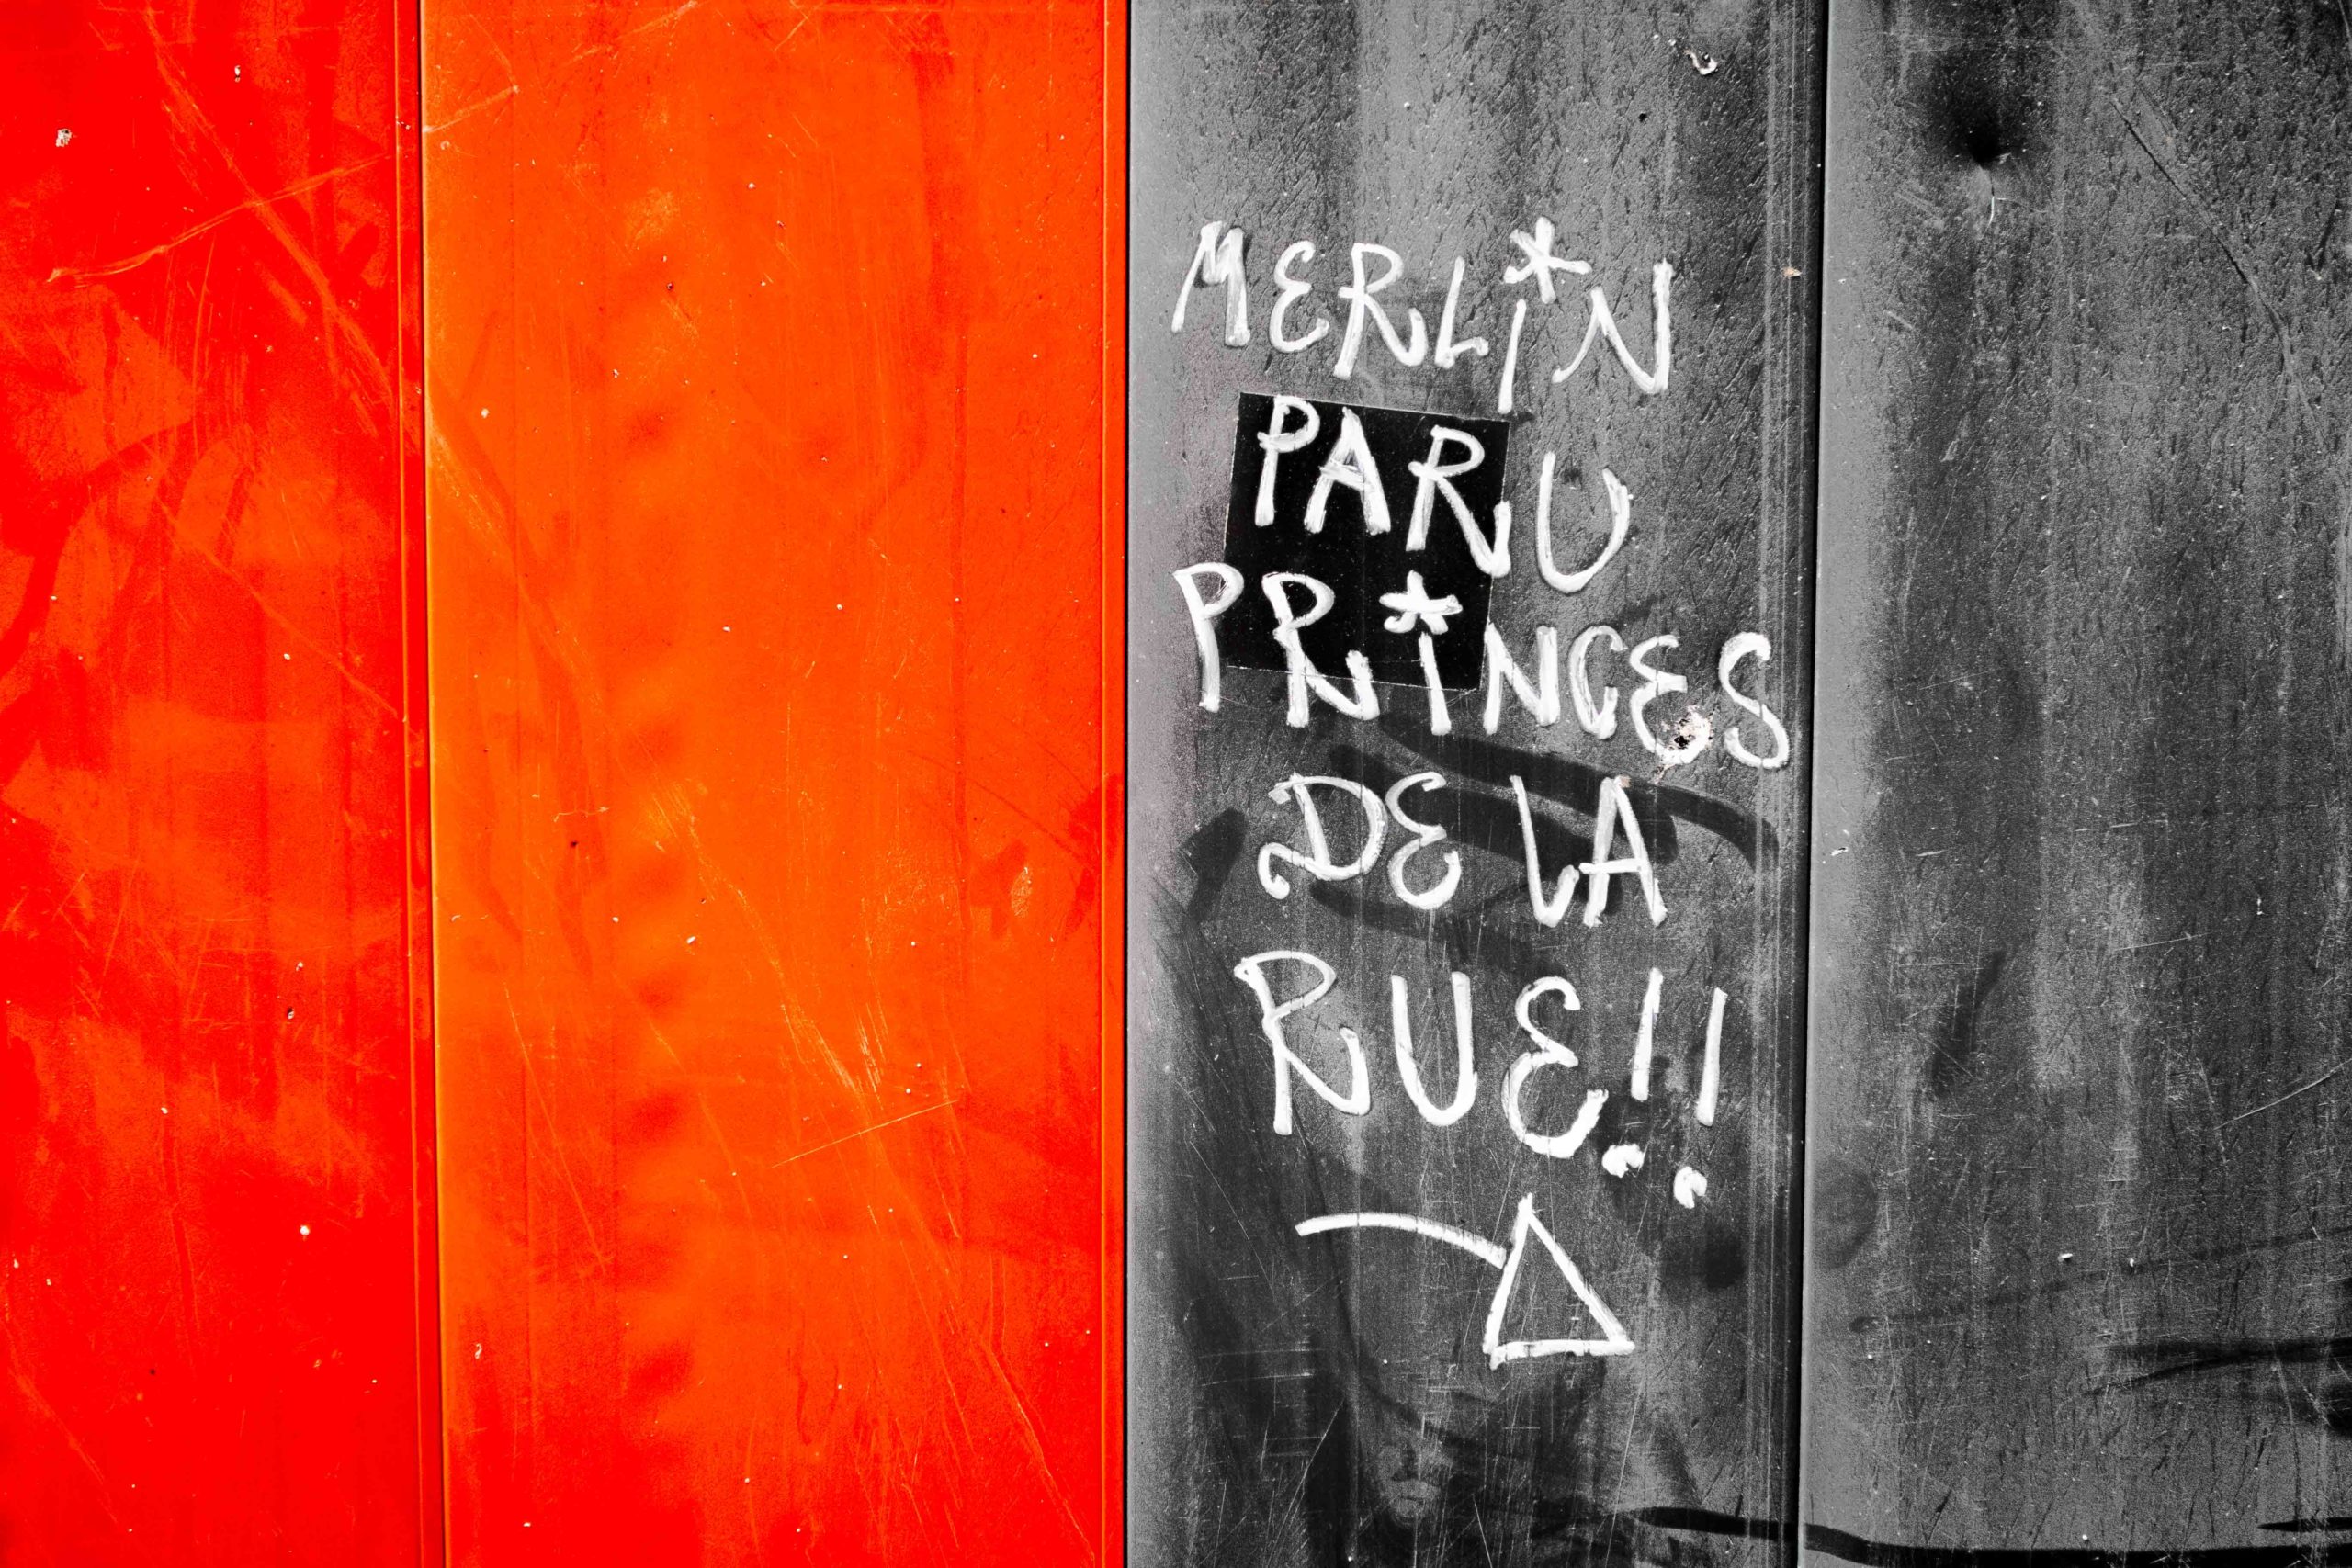 MERLiN
PARU
PRiNCES
DE LA
RUE!!